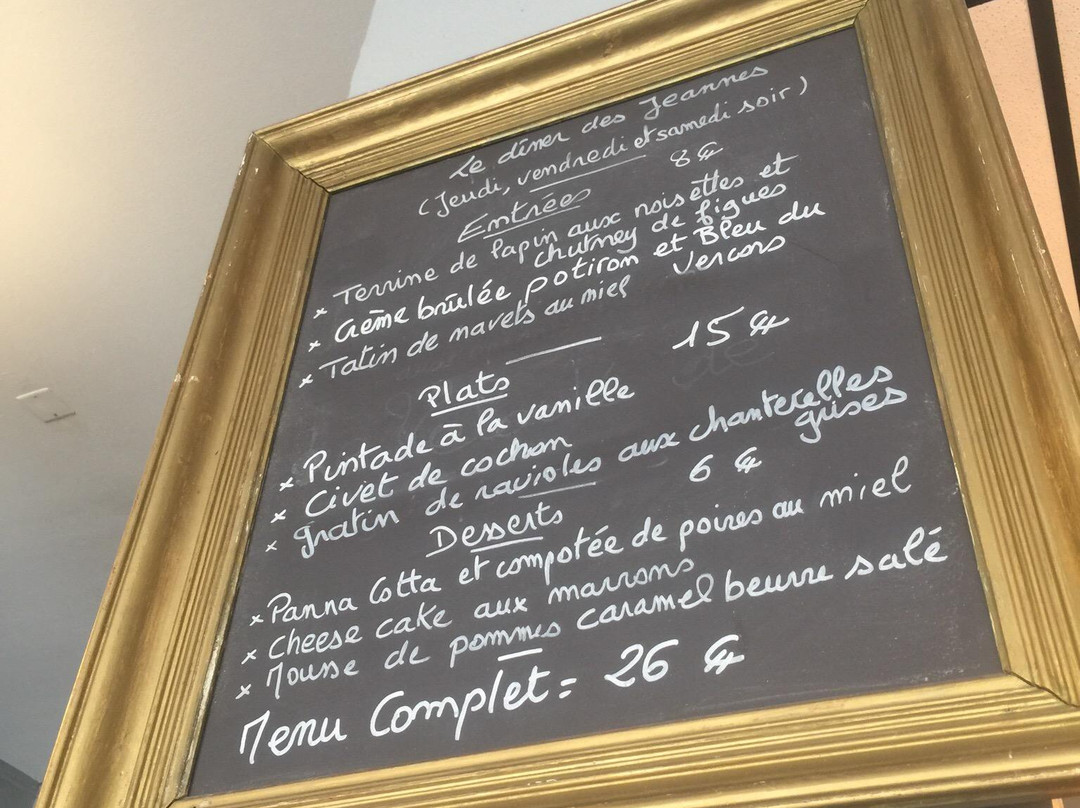 Le dîner des Jeannes
(Jeudi, vendredi et samedi soir)
Entrées 8€
* Terrine de lapin aux noisettes et
chutney de figues
* Crème brûlée potiron et Bleu du
Vercors
* Tatin de navets au miel
Plats 15 €
* Pintade à la vanille
* Civet de cochon
* gratin de ravioles aux chanterelles
grises
Desserts 6 €
* Panna Cotta et compotée de poires au miel
* Cheese cake aux marrons
* Mousse de pommes caramel beurre salé
Menu Complet = 26 €